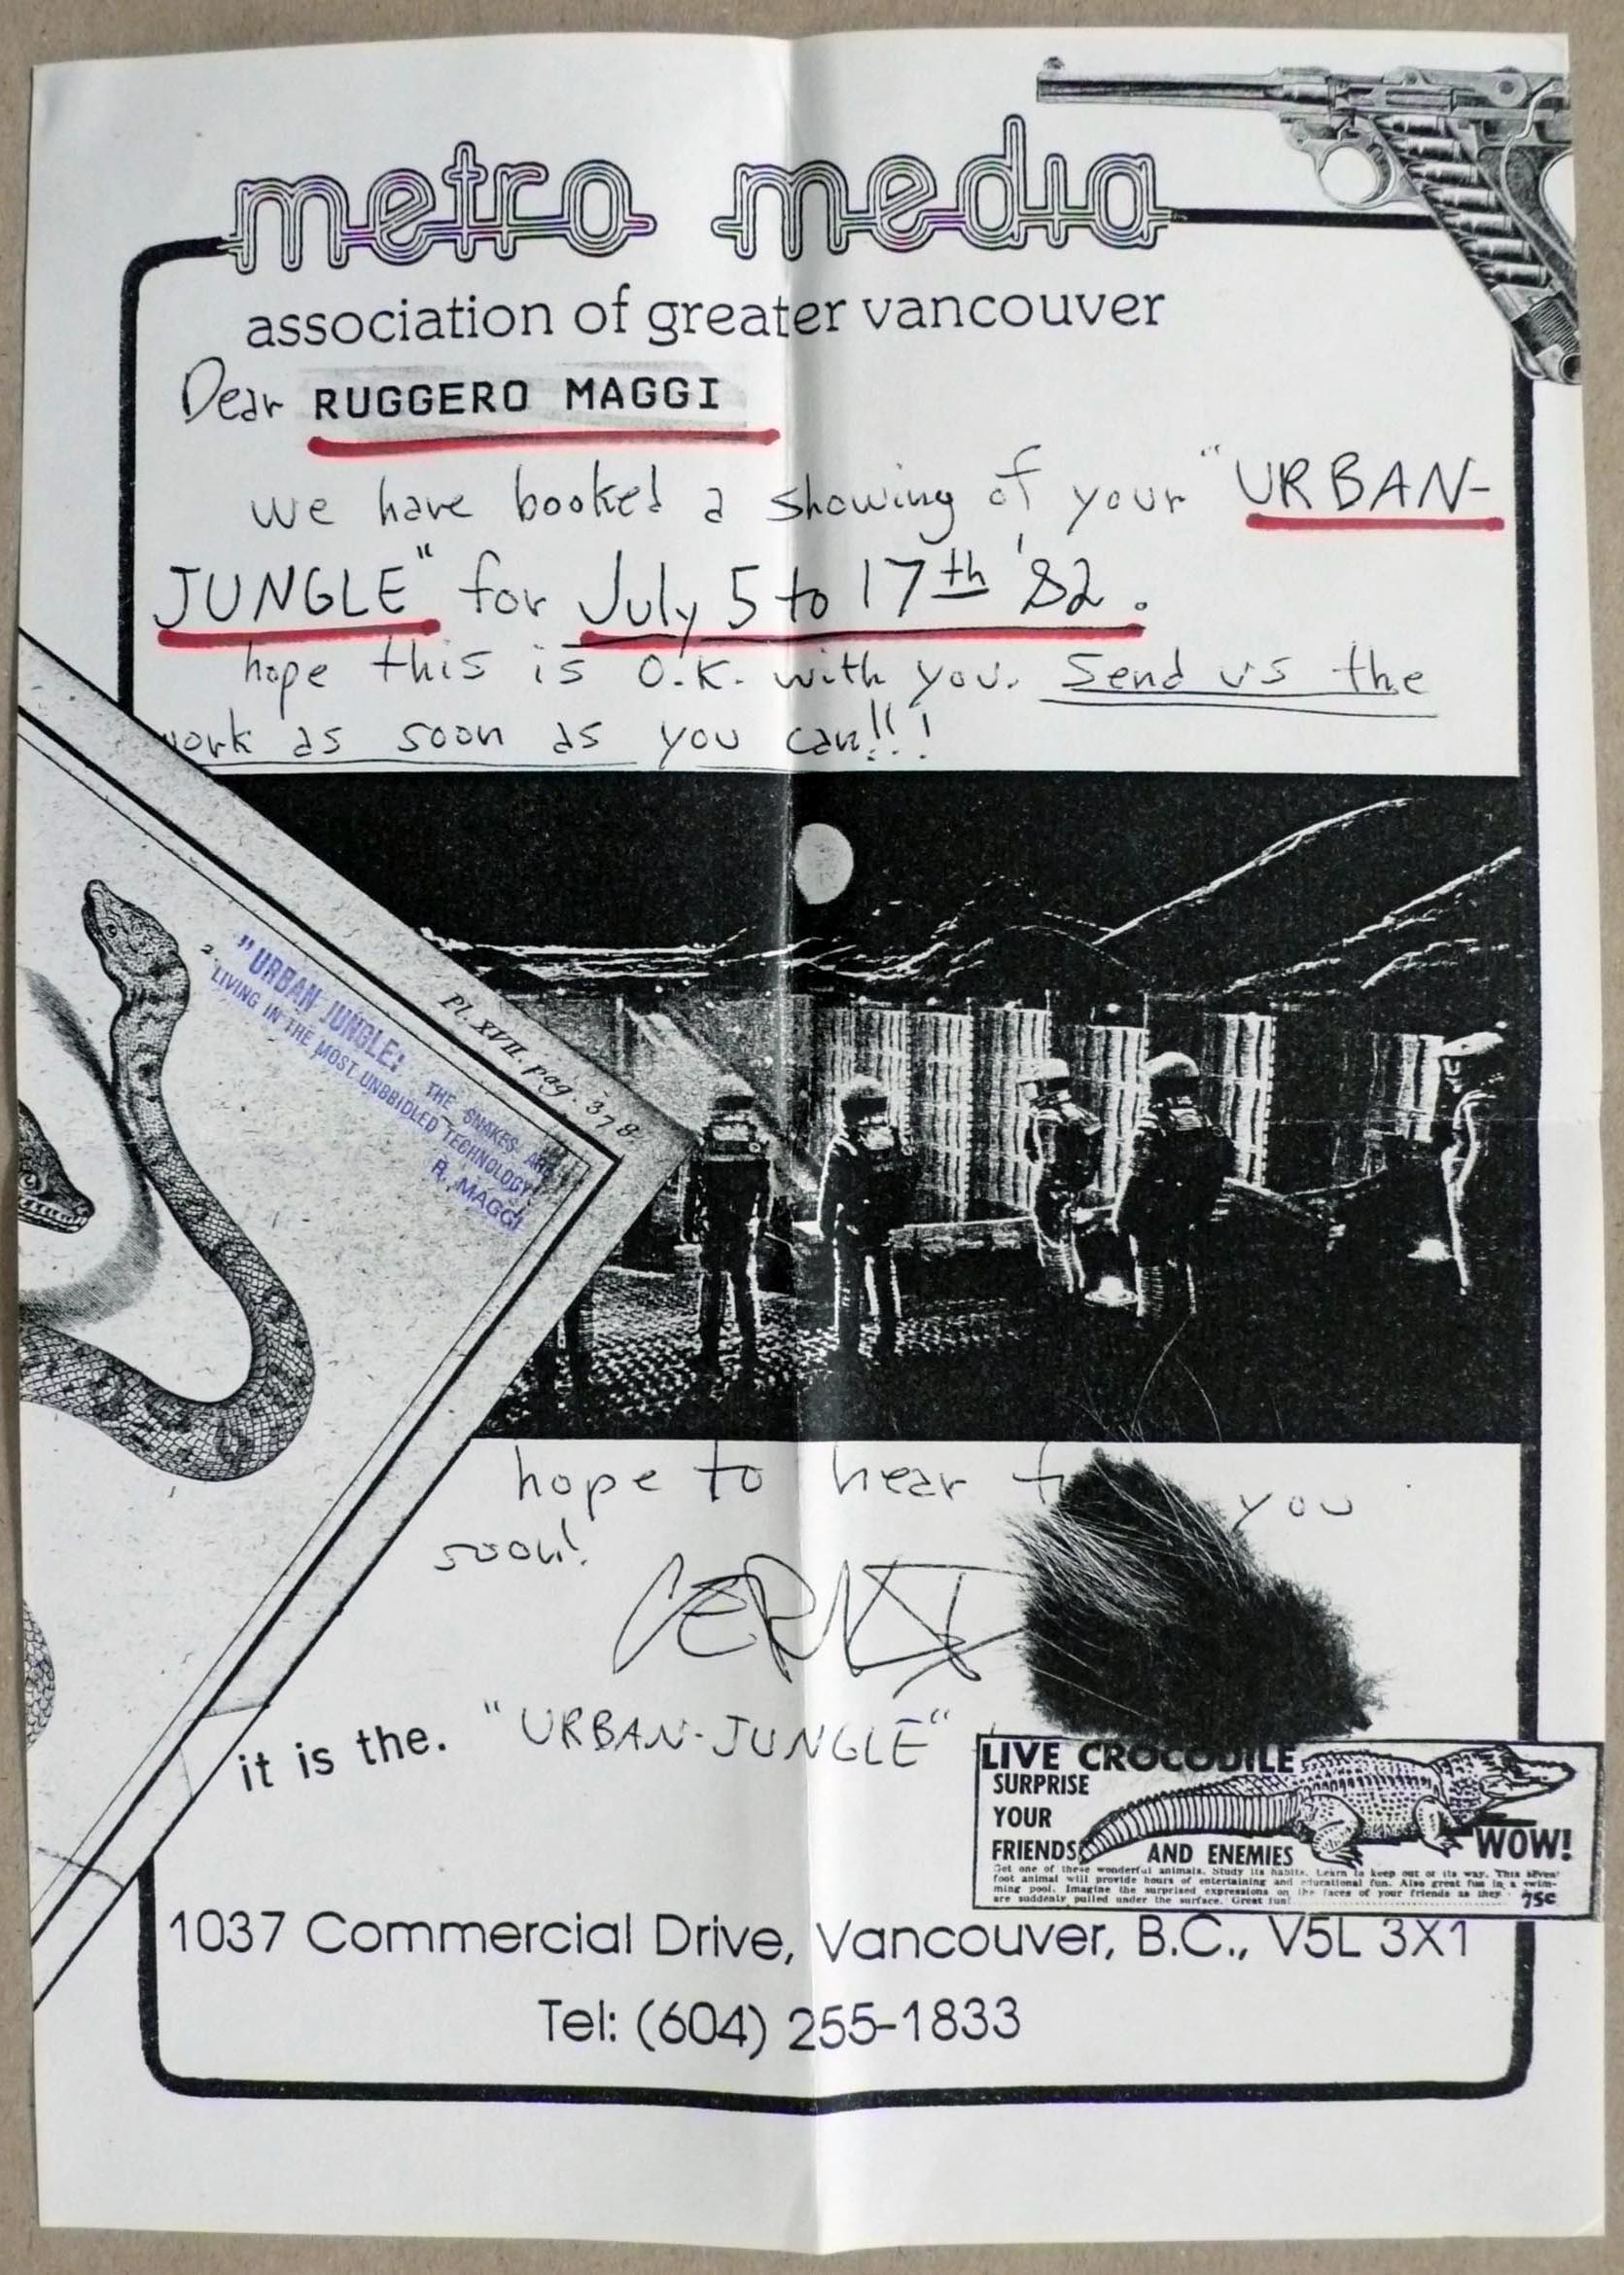 metro media
association of greater vancouver
Dear RUGGERO MAGGI
we have booked a showing of your "URBAN-
JUNGLE" for July 5 to 17th '82.
hope this is O.K. with you. Send us the
work as soon as you can!!!
Pl. XVII. pag. 378.
"URBAN JUNGLE: THE SNAKES ARE
LIVING IN THE MOST UNBRIDLED TECHNOLOGY!
R. MAGGI
hope to hear f you
soon!
it is the. "URBAN-JUNGLE"
LIVE CROCODILE
SURPRISE
YOUR
FRIENDS AND ENEMIES WOW!
Get one of these wonderful animals. Study its habits. Learn to keep out of its way. This seven
foot animal will provide hours of entertaining and educational fun. Also great fun in a swim-
ming pool. Imagine the surprised expressions on the faces of your friends as they
are suddenly pulled under the surface. Great fun! 75c
1037 Commercial Drive, Vancouver, B.C., V5L 3X1
Tel: (604) 255-1833